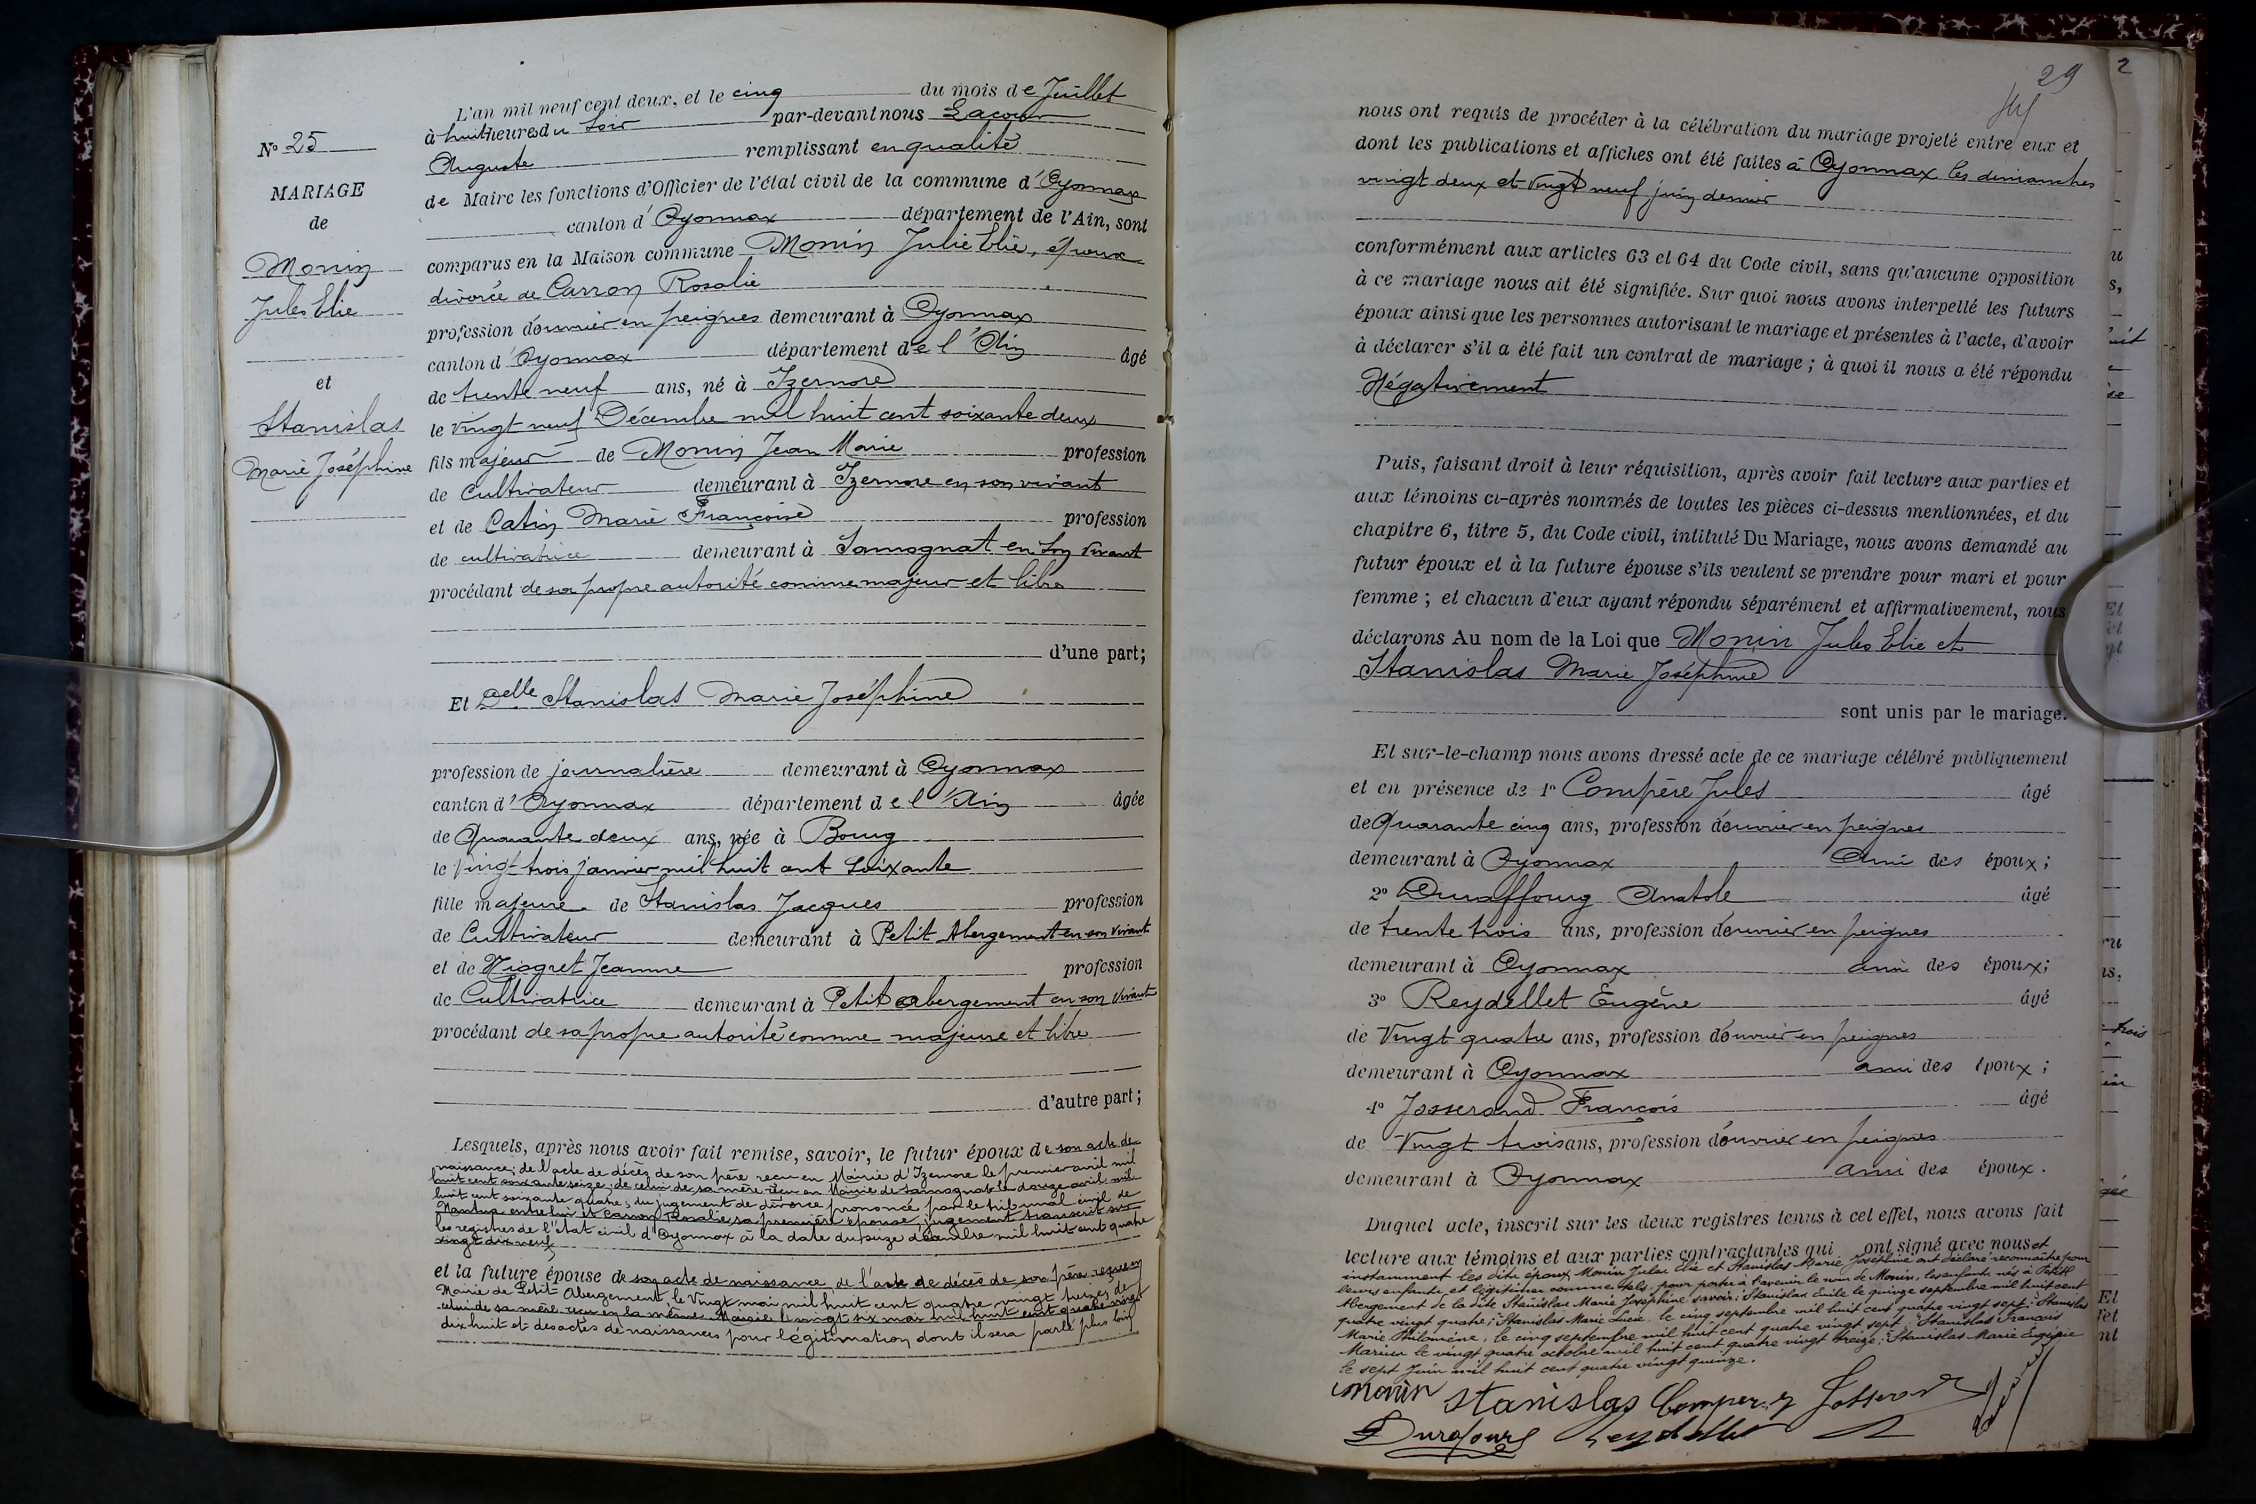 L'an mil neuf cent deux, et le cinq du mois de Juillet
à huit heures du Soir par-devant nous Lacour
Auguste remplissant en qualité
de Maire les fonctions d'Officier de l'état civil de la commune d'Oyonnax
canton d'Oyonnax département de l'Ain, sont
comparus en la Maison commune Monin Julie Elie, époux
divorcé de Carron Rosalie
profession d'ouvrier en peignes demeurant à Oyonnax
canton d'Oyonnax département de l'Ain âgé
de trente neuf ans, né à Izernore
le vingt neuf Décembre mil huit cent soixante deux
fils majeur de Monin Jean Marie profession
de Cultivateur demeurant à Izernore en son vivant
et de Catin Marie Françoise profession
de cultivatrice demeurant à Samognat en son vivant
procédant de sa propre autorité comme majeur et libre
d'une part;
Et Delle Stanislas Marie Joséphine
profession de journalière demeurant à Oyonnax
canton d'Oyonnax département de l'Ain âgée
de Quarante deux ans, née à Bourg
le Vingt-trois janvier mil huit cent soixante
fille majeure de Stanislas Jacques profession
de Cultivateur demeurant à Petit Abergement en son vivant
et de Niogret Jeanne profession
de Cultivatrice demeurant à Petit abergement en son vivant
procédant de sa propre autorité comme majeure et libre
d'autre part;
Lesquels, après nous avoir fait remise, savoir, le futur époux de son acte de
naissance; de l'acte de décès de son père reçu en Mairie d'Izernore le premier avril mil
huit cent soixante seize; de celui de sa mère reçu en Mairie de Samognat le douze avril mil
huit cent soixante quatre; du jugement de divorce prononcé par le tribunal civil de
Nantua entre lui et Carron Rosalie, sa première épouse, jugement transcrit sur
les registres de l'état civil d'Oyonnax à la date du seize décembre mil huit cent quatre
vingt dix neuf
et la future épouse de son acte de naissance, de l'acte de décès de son père reçu en
Mairie de Petit Abergement le Vingt mai mil huit cent quatre vingt treize; de
celui de sa mère reçu en la même Mairie le vingt six mai mil huit cent quatre vingt
dix huit et des actes de naissances pour légitimation dont il sera parlé plus loin
No 25
MARIAGE
de
Monin
Jules Elie
et
Stanislas
Marie Joséphine
29
nous ont requis de procéder à la célébration du mariage projeté entre eux et
dont les publications et affiches ont été faites à Oyonnax les dimanches
vingt deux et vingt neuf juin dernier
conformément aux articles 63 et 64 du Code civil, sans qu'aucune opposition
à ce mariage nous ait été signifiée. Sur quoi nous avons interpellé les futurs
époux ainsi que les personnes autorisant le mariage et présentes à l'acte, d'avoir
à déclarer s'il a été fait un contrat de mariage; à quoi il nous a été répondu
Négativement
Puis, faisant droit à leur réquisition, après avoir fait lecture aux parties et
aux témoins ci-après nommés de toutes les pièces ci-dessus mentionnées, et du
chapitre 6, titre 5, du Code civil, intitulé Du Mariage, nous avons demandé au
futur époux et à la future épouse s'ils veulent se prendre pour mari et pour
femme; et chacun d'eux ayant répondu séparément et affirmativement, nous
déclarons Au nom de la Loi que Monin Jules Elie et
Stanislas Marie Joséphine
sont unis par le mariage.
Et sur-le-champ nous avons dressé acte de ce mariage célébré publiquement
et en présence de 1o Compère Jules âgé
de Quarante cinq ans, profession d'ouvrier en peignes
demeurant à Oyonnax Ami des époux;
2o Duraffourg Anatole âgé
de trente trois ans, profession d'ouvrier en peignes
demeurant à Oyonnax ami des époux;
3o Reydellet Eugène âgé
de Vingt quatre ans, profession d'ouvrier en peignes
demeurant à Oyonnax ami des époux;
4o Josserand François âgé
de Vingt trois ans, profession d'ouvrier en peignes
demeurant à Oyonnax ami des époux.
Duquel acte, inscrit sur les deux registres tenus à cet effet, nous avons fait
lecture aux témoins et aux parties contractantes qui ont signé avec nous et
instamment les dits époux Monin Jules Elie et Stanislas Marie Joséphine ont déclaré reconnaître pour
leurs enfants et légitimer comme tels, pour porter à l'avenir le nom de Monin, les enfants nés à Petit
Abergement de la dite Stanislas Marie Joséphine savoir: Stanislas Emile le quinze septembre mil huit cent
quatre vingt quatre; Stanislas Marie Lucie, le cinq septembre mil huit cent quatre vingt sept; Stanislas
Marie Philomène, le cinq septembre mil huit cent quatre vingt sept; Stanislas François
Marius le vingt quatre octobre mil huit cent quatre vingt treize; Stanislas Marie Eugénie
le sept Juin mil huit cent quatre vingt quinze.
Monin Stanislas Comper J Josserand
Durafourg Reydellet